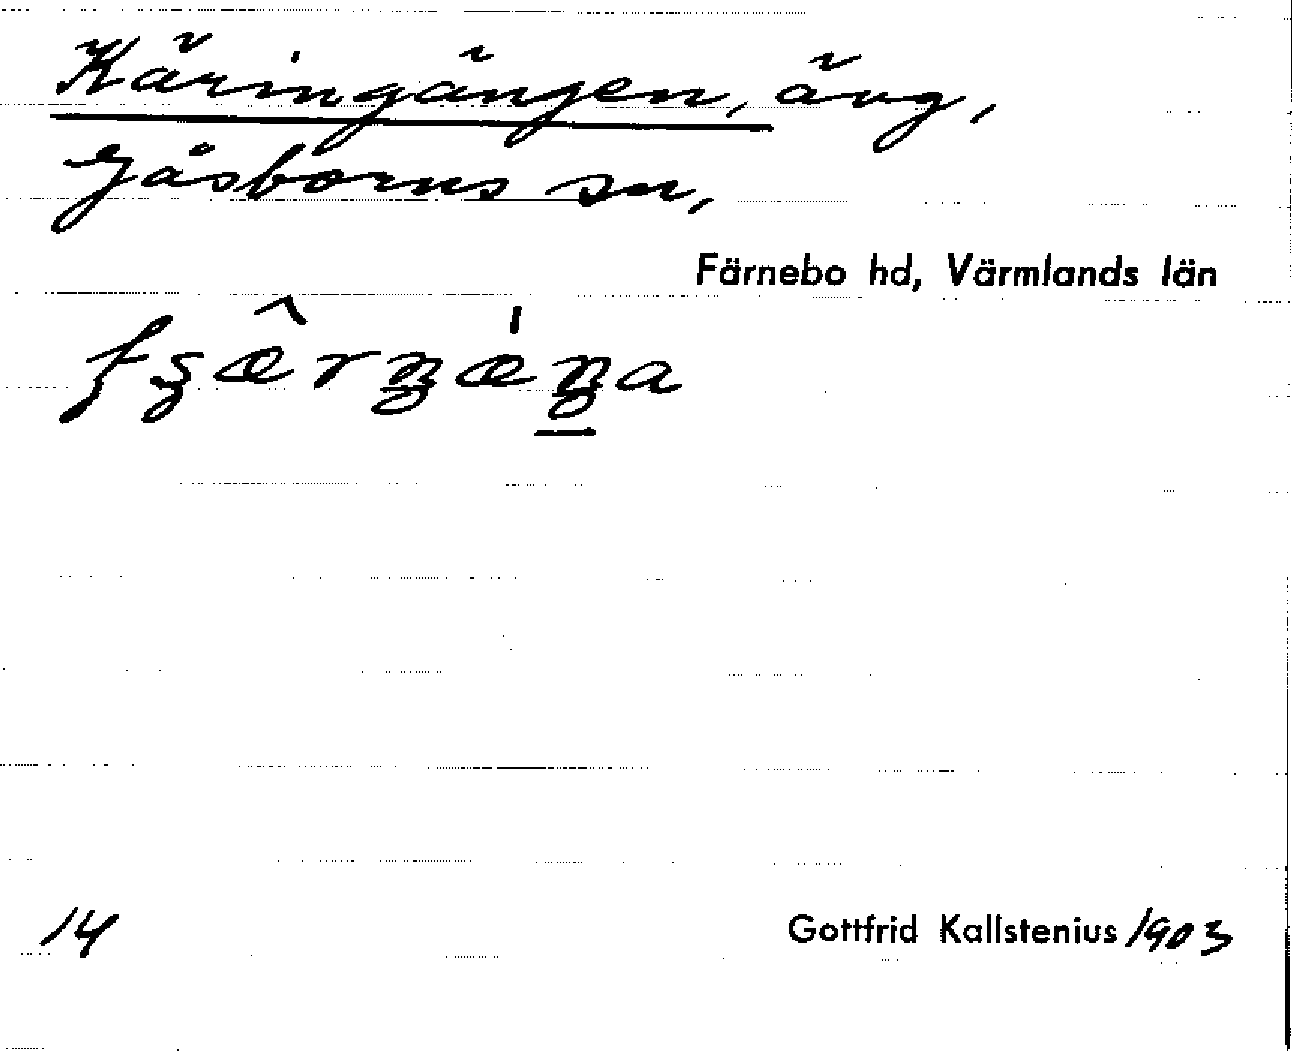 Käringängen, ävg,
Gåsborns sn,
Färnebo hd, Värmlands län
14
Gottfrid Kallstenius 1903